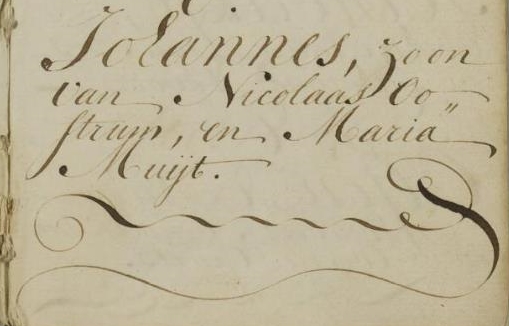 Johannes, zoon
van Nicolaas Oo„
strum, en Maria
Muijt.